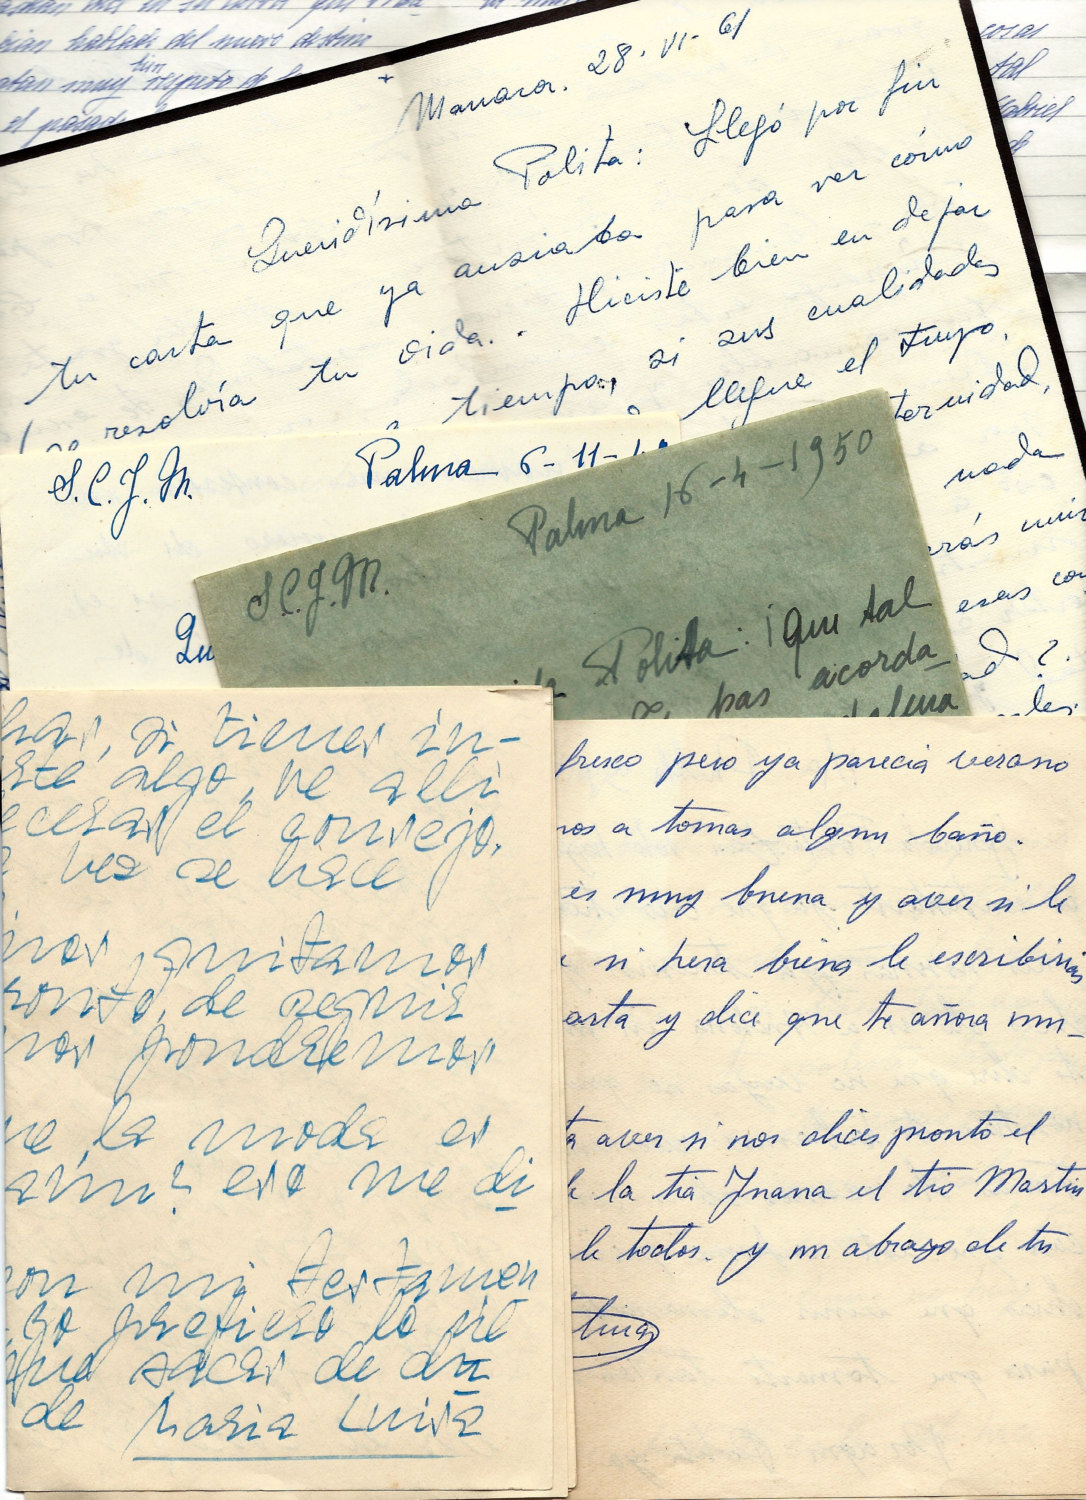 hablado del nuevo destino
muy bien respeto de l
el pasad
cosas
tal
Gabriel
Manacor. 28-VI-61
Queridísima Polita: Llegó por fin
tu carta que ya ansiaba para ver cómo
se resolvía tu vida.. Hiciste bien en dejar
tiempo, si sus cualidades
llegue el tuyo.
ternidad,
nada
rás
esas co
ad?.
S.C.J.M. Palma 6-11-
Qu
S.C.J.M. Palma 16-4-1950
Polita: ¡Que tal
pas acorda
si tienes in-
ste algo, ve allí
ecesar el consejo.
vez se hace
nos quitamos
ronto, de seguir
nos pondremos
ue la moda es
asín? eso me di
con mi testamen
go prefiero lo
que sacar de du
de Maria Luisa
fresco pero ya parecia verano
nos a tomar algun baño.
es muy buena y aver si le
si hera biena le escribirias
arta y dice que te añora mu-
ta aver si nos dices pronto el
de la tia Juana el tio Martin
de todos. y un abrazo de tu
tina